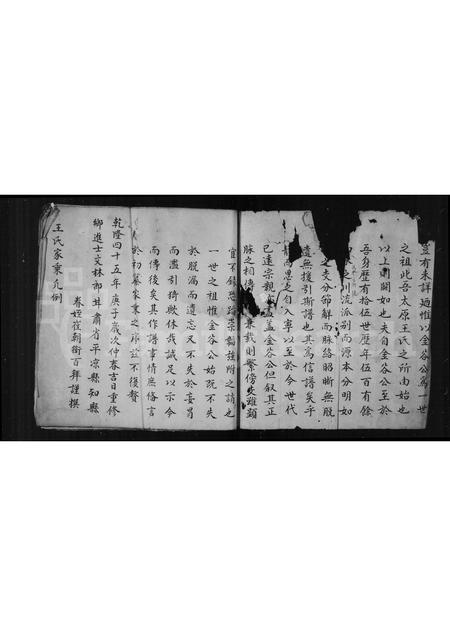 豈有未詳迺惟以金谷公爲一世
之祖此吾太原王氏之所由始也
以上闕如也夫自金谷公至於
吾身歷有拾伍世歷年伍百有餘
川流派别而源本分明如
支分節解而脉絡昭晰無脱
遺無援引斯譜也其爲信譜矣乎
思克自入寧以至於今世代
已遠宗親 蓋金谷公但叙其正
脉之相傳 兼載則繁傍支雖顯
宜不錄 譜之所請也
一世之祖惟金谷公始既不失
於脱漏而遺忘又不失於妄冒
而濫引猗歟休哉誠足以示今
而傳後矣其作譜事情庶恪言
於初纂家乘之序茲不復贅
乾隆四十五年庚子歲次仲春吉日重修
鄉進士文林郎甘肅省平凉縣知縣
眷姪崔朝衛百拜謹撰
王氏家乘凡例